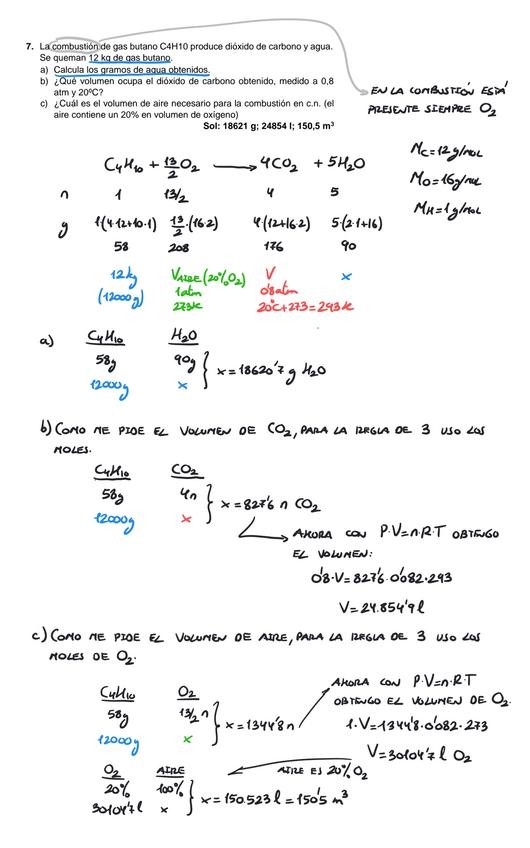 7. La combustión de gas butano C4H10 produce dióxido de carbono y agua.
Se queman 12 kg de gas butano.
a) Calcula los gramos de agua obtenidos.
b) ¿Qué volumen ocupa el dióxido de carbono obtenido, medido a 0,8
atm y 20ºC?
c) ¿Cuál es el volumen de aire necesario para la combustión en c.n. (el
aire contiene un 20% en volumen de oxígeno)
Sol: 18621 g; 24854 l; 150,5 m³
EN LA COMBUSTIÓN ESTÁ
PRESENTE SIEMPRE O₂
Mc=12g/mol
Mo=16g/mol
MH=1g/mol
C₄H₁₀ + 13/2 O₂ ⟶ 4CO₂ + 5H₂O
n 1 13/2 4 5
g 1(4·12+10·1) 13/2·(16·2) 4·(12+16·2) 5·(2·1+16)
58 208 176 90
12kg VAIRE(20%O₂) V x
(12000g) 1atm 0'8atm
273K 20ºC+273=293K
a) C₄H₁₀ H₂O
58g 90g
12000g x
x=18620'7 g H₂O
b) COMO ME PIDE EL VOLUMEN DE CO₂, PARA LA REGLA DE 3 USO LOS
MOLES.
C₄H₁₀ CO₂
58g 4n
12000g x
x=827'6 n CO₂
AHORA CON P·V=n·R·T OBTENGO
EL VOLUMEN:
0'8·V=827'6·0'082·293
V=24.854'9 l
c) COMO ME PIDE EL VOLUMEN DE AIRE, PARA LA REGLA DE 3 USO LOS
MOLES DE O₂.
C₄H₁₀ O₂
58g 13/2 n
12000g x
x=1344'8n
AHORA CON P·V=n·R·T
OBTENGO EL VOLUMEN DE O₂.
1·V=1344'8·0'082·273
V=30104'7 l O₂
AIRE ES 20% O₂
O₂ AIRE
20% 100%
30104'7 l x
x=150.523 l=150'5 m³